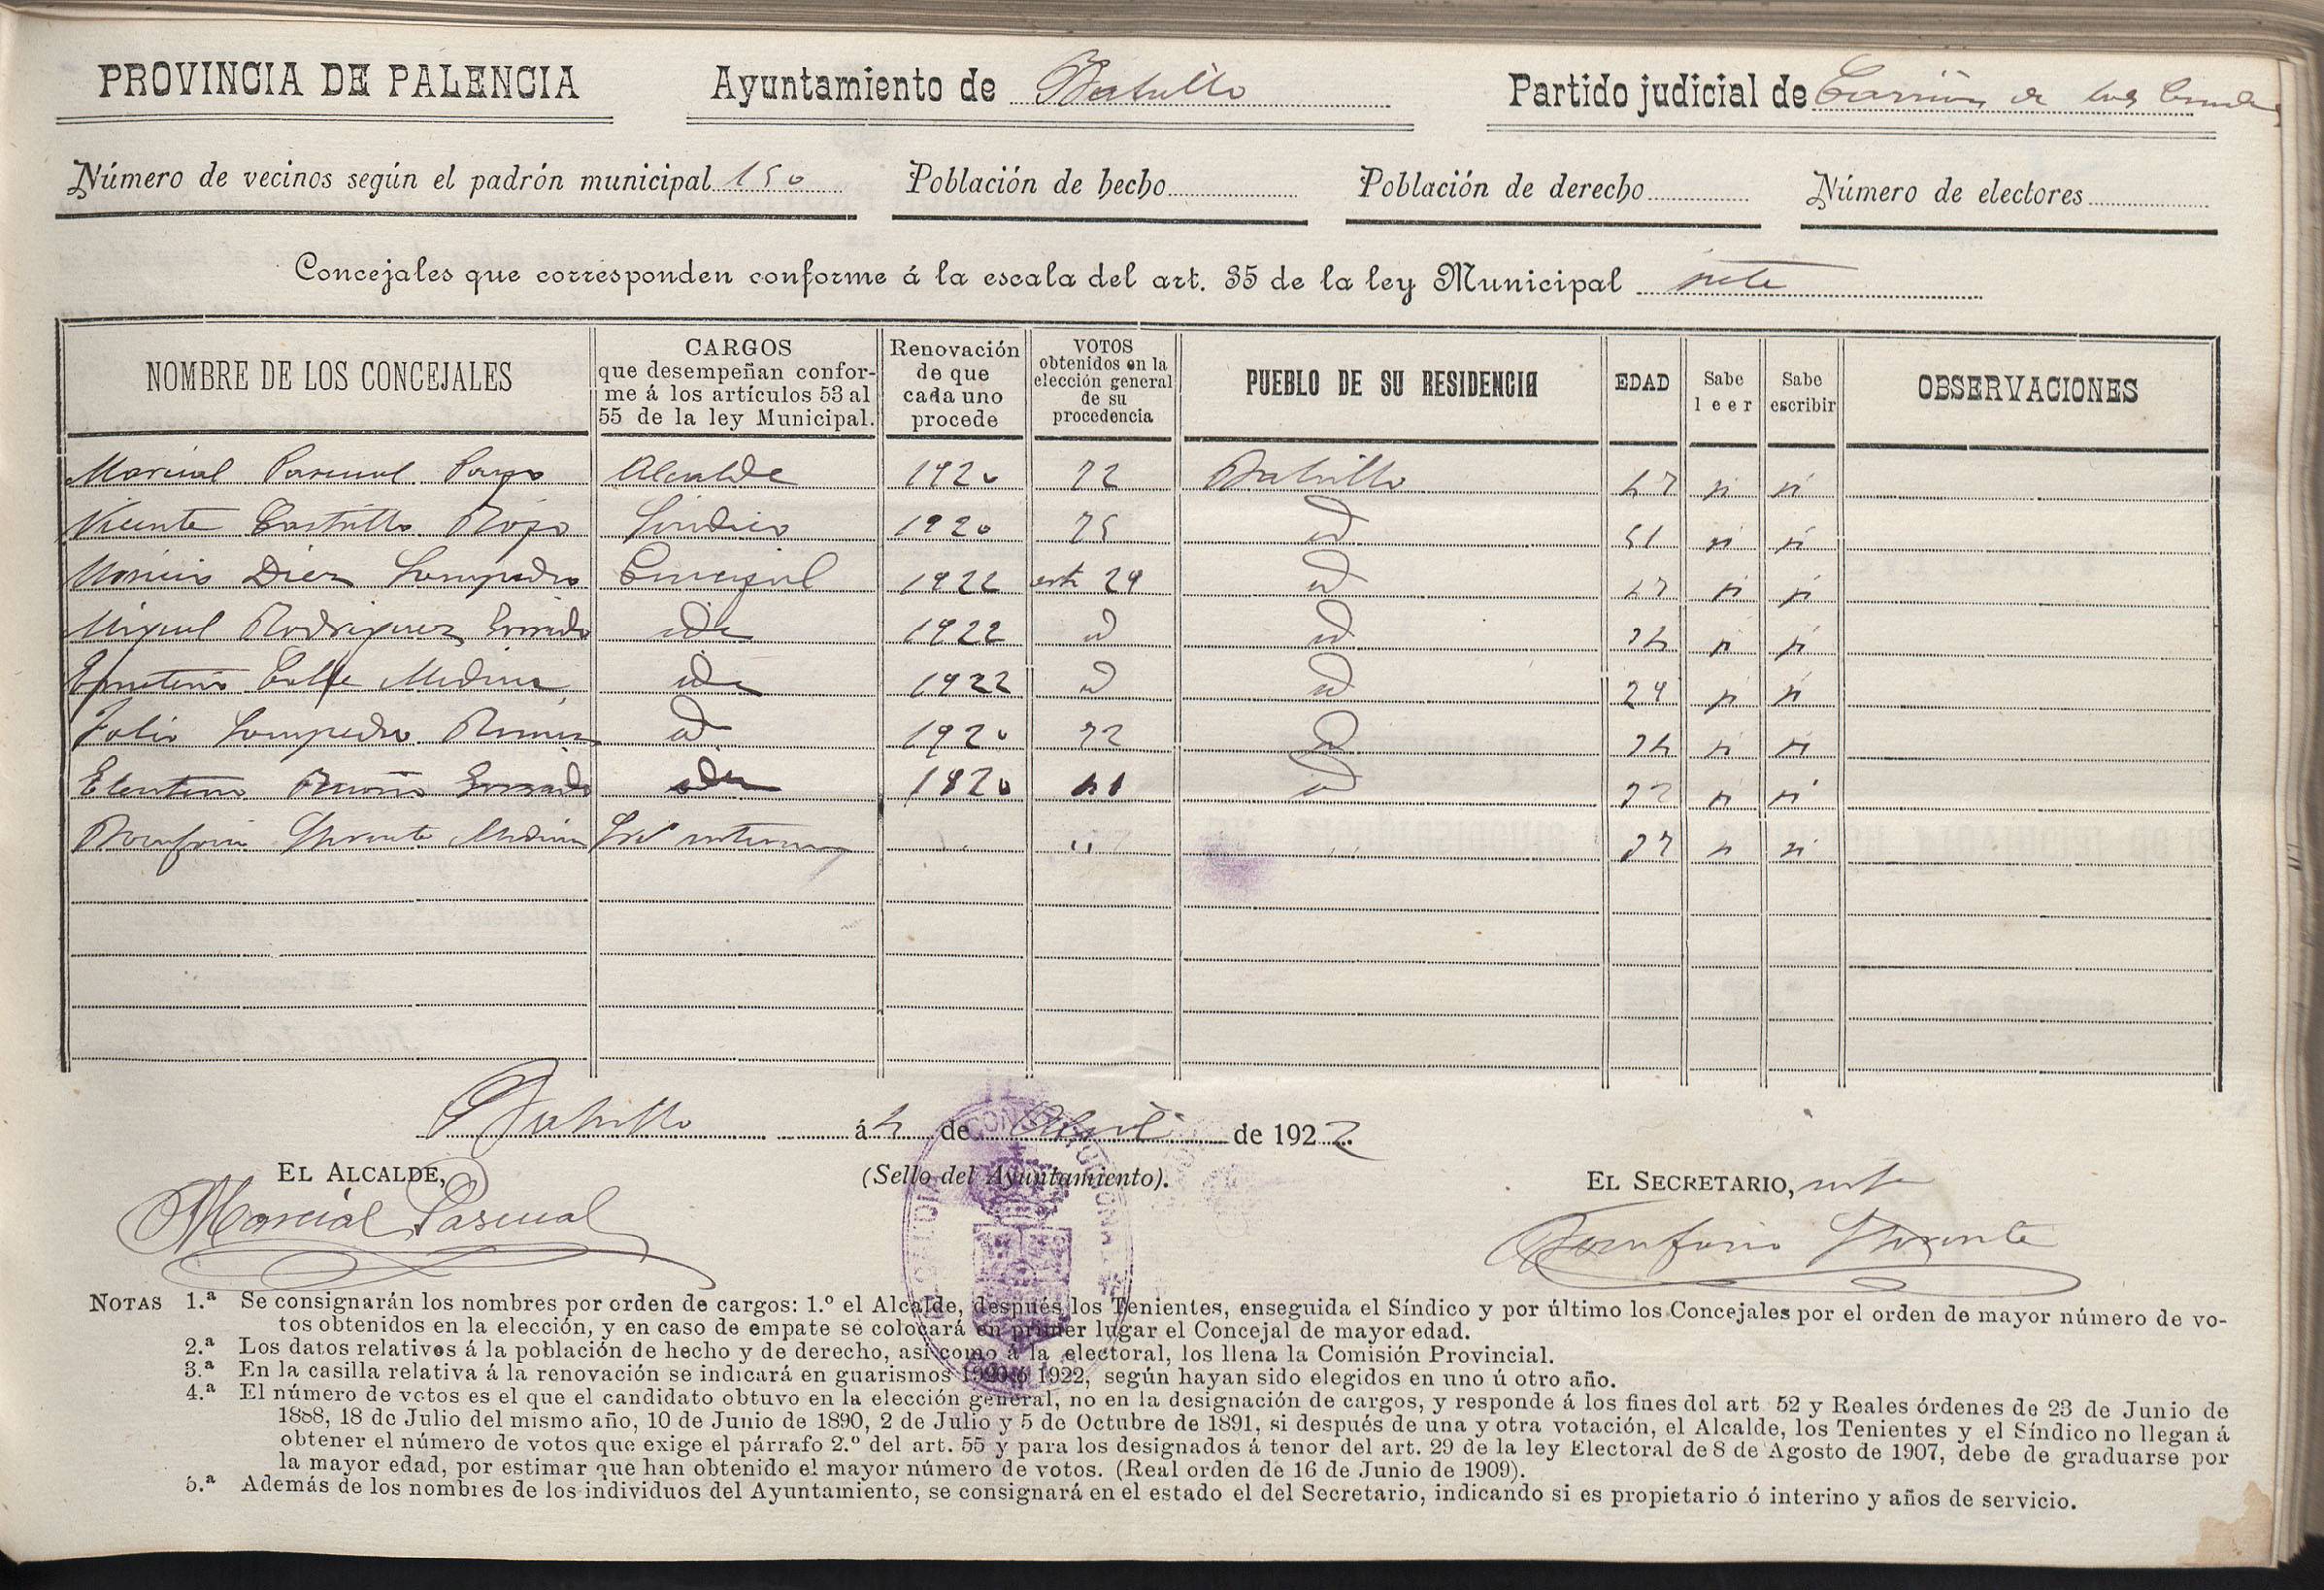 PROVINCIA DE PALENCIA Ayuntamiento de Bustillo Partido judicial de Carrión de los Condes
Número de vecinos según el padrón municipal 150 Población de hecho Población de derecho Número de electores
Concejales que corresponden conforme á la escala del art. 35 de la ley Municipal siete
NOMBRE DE LOS CONCEJALES
CARGOS
que desempeñan confor-
me á los artículos 53 al
55 de la ley Municipal.
Renovación
de que
cada uno
procede
VOTOS
obtenidos en la
elección general
de su
procedencia
PUEBLO DE SU RESIDENCIA
EDAD
Sabe
leer
Sabe
escribir
OBSERVACIONES
Marcial Pascual Alcalde 1920 Bustillo si si
Vicente Castrillo Rojo Síndico 1920 id 51 si si
Diez Sampedro Concejal 1922 art 29 id si si
Miguel Rodriguez 1922 id id si si
Emeterio Calle Medina 1922 id id 29 si si
Sampedro id 1920 id si si
Eleuterio 1920 id si si
Bonifacio Llorente Medina Srio interino si si
Bustillo á de Abril de 1922
EL ALCALDE,
(Sello del Ayuntamiento).
EL SECRETARIO, into
Marcial Pascual
Bonifacio Llorente
NOTAS 1.ª Se consignarán los nombres por orden de cargos: 1.º el Alcalde, después los Tenientes, enseguida el Síndico y por último los Concejales por el orden de mayor número de vo-
tos obtenidos en la elección, y en caso de empate se colocará en primer lugar el Concejal de mayor edad.
2.ª Los datos relativos á la población de hecho y de derecho, así como á la electoral, los llena la Comisión Provincial.
3.ª En la casilla relativa á la renovación se indicará en guarismos 1920 ó 1922, según hayan sido elegidos en uno ú otro año.
4.ª El número de votos es el que el candidato obtuvo en la elección general, no en la designación de cargos, y responde á los fines del art 52 y Reales órdenes de 23 de Junio de
1888, 18 de Julio del mismo año, 10 de Junio de 1890, 2 de Julio y 5 de Octubre de 1891, si después de una y otra votación, el Alcalde, los Tenientes y el Síndico no llegan á
obtener el número de votos que exige el párrafo 2.º del art. 55 y para los designados á tenor del art. 29 de la ley Electoral de 8 de Agosto de 1907, debe de graduarse por
la mayor edad, por estimar que han obtenido el mayor número de votos. (Real orden de 16 de Junio de 1909).
5.ª Además de los nombres de los individuos del Ayuntamiento, se consignará en el estado el del Secretario, indicando si es propietario ó interino y años de servicio.